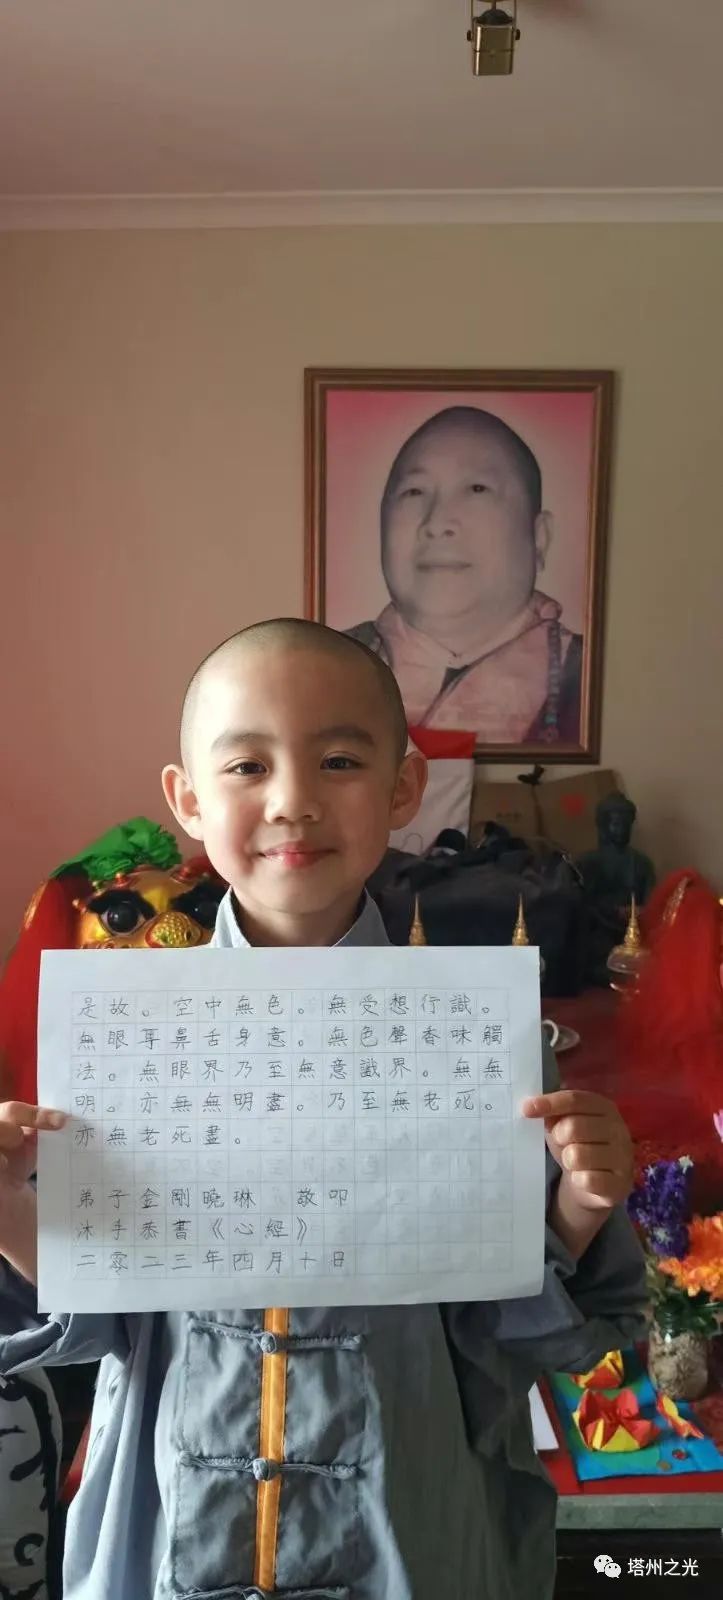 是故。空中無色。無受想行識。
無眼耳鼻舌身意。無色聲香味觸
法。無眼界乃至無意識界。無無
明。亦無無明盡。乃至無老死。
亦無老死盡。
弟子金剛曉琳 敬叩
沐手恭書《心經》
二零二三年四月十日
塔州之光